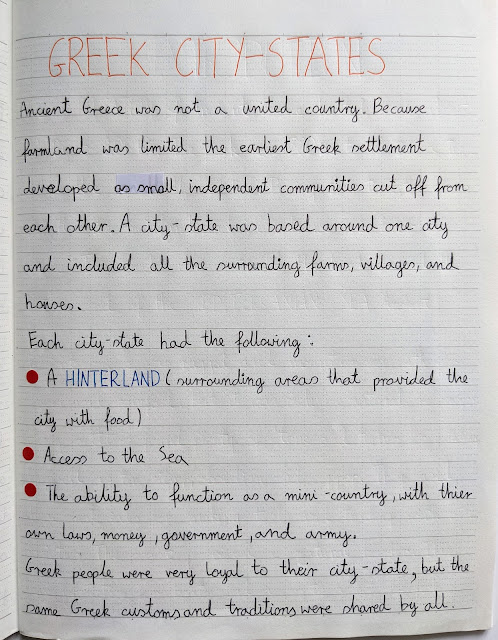 GREEK CITY-STATES
Ancient Greece was not a united country. Because
farmland was limited the earliest Greek settlement
developed as small, independent communities cut off from
each other. A city-state was based around one city
and included all the surrounding farms, villages, and
houses.
Each city-state had the following:
● A HINTERLAND (surrounding areas that provided the
city with food)
● Access to the Sea
● The ability to function as a mini-country, with thier
own laws, money, government, and army.
Greek people were very loyal to their city-state, but the
same Greek customs and traditions were shared by all.